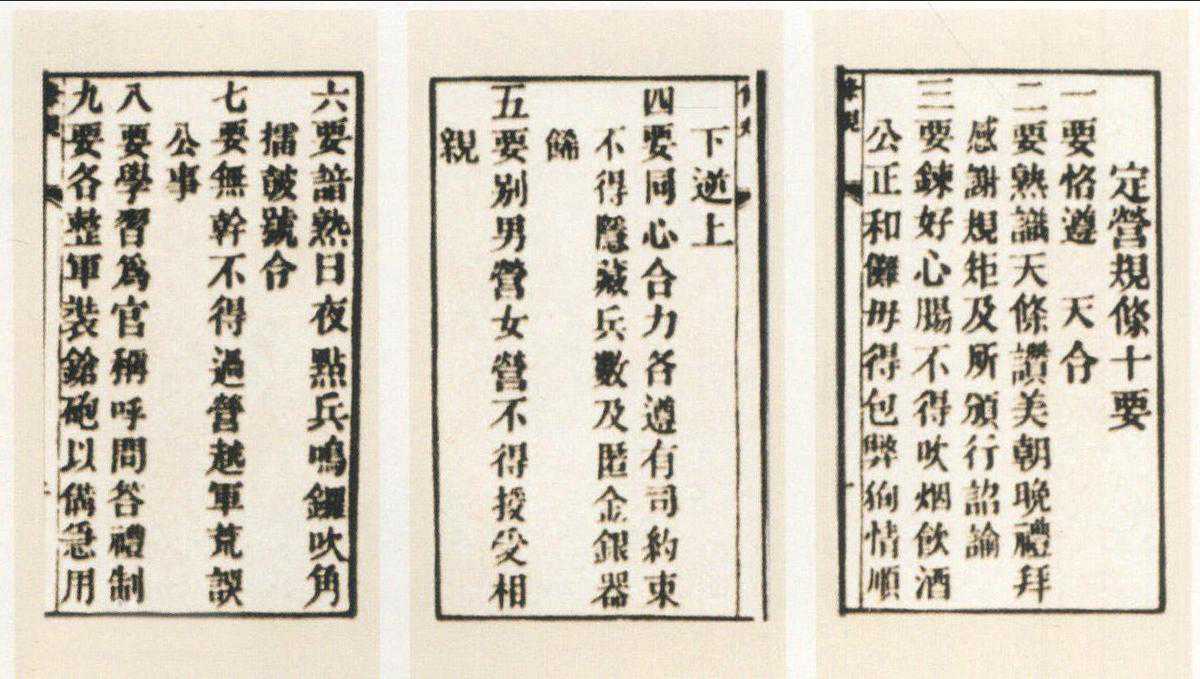 定營規條十要
一要恪遵 天令
二要熟識天條讚美朝晚禮拜
感謝規矩及所頒行詔諭
三要鍊好心腸不得吹烟飲酒
公正和儺毋得包弊徇情順
下逆上
四要同心合力各遵有司約束
不得隱藏兵數及匿金銀器
餙
五要別男營女營不得授受相
親
六要諳熟日夜點兵鳴鑼吹角
擂皷號令
七要無幹不得過營越軍荒誤
公事
八要學習爲官稱呼問答禮制
九要各整軍裝鎗砲以備急用